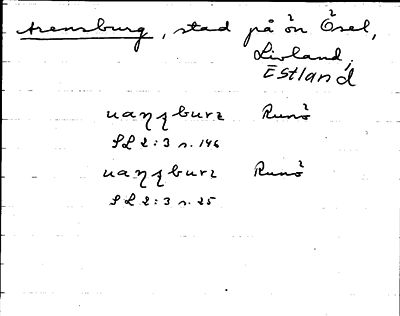 Arensburg, stad på ön Ösel,
Livland,
Estland
uaŋʒburz Runö
SL 2:3 s. 146
uaŋʒburz Runö
SL 2:3 s. 25